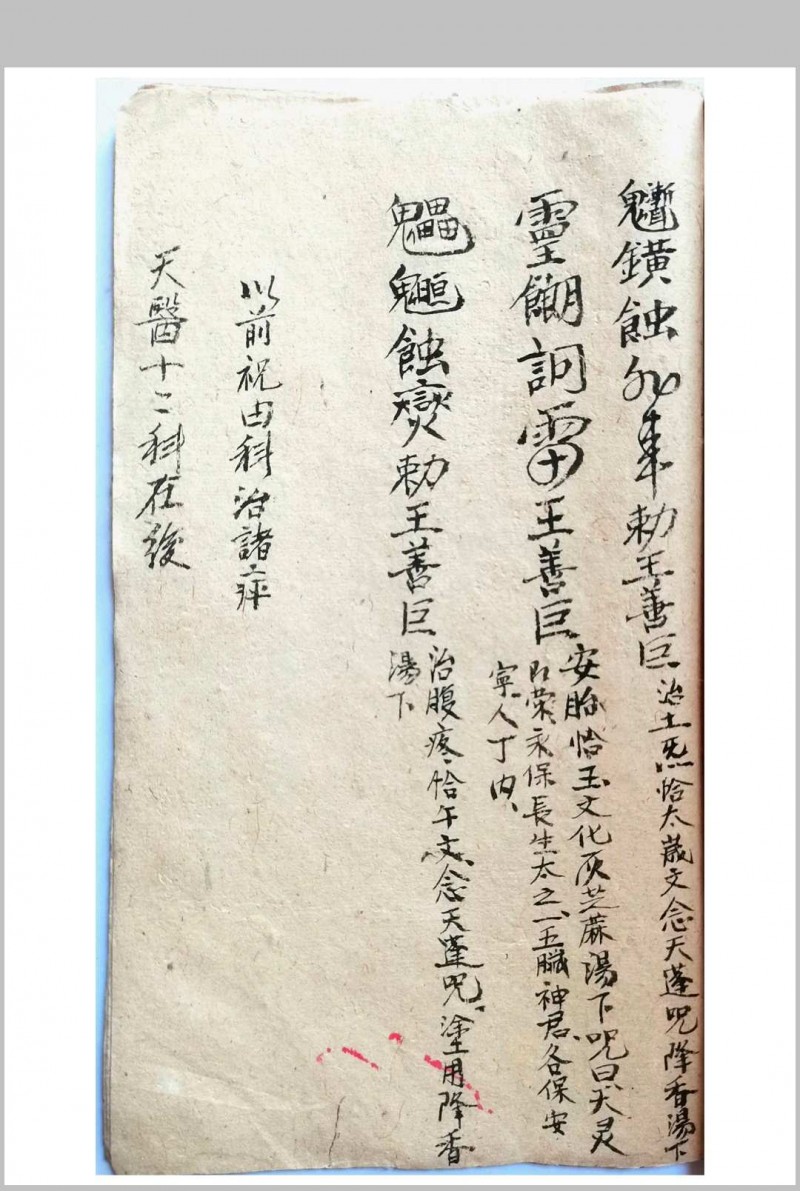 蝕
勅王善巨
治土炁恰太歲文念天蓬咒降香湯下
靈
訶雷王善巨
安胎恰玉文化灰芝蔴湯下咒曰天灵
榮永保長生太之一五臟神君各保安
寧人丁内
蝕
勅王善巨
治腹疼恰午文念天蓬咒塗用降香
湯下
以前祝由科治諸症
天醫十二科在後